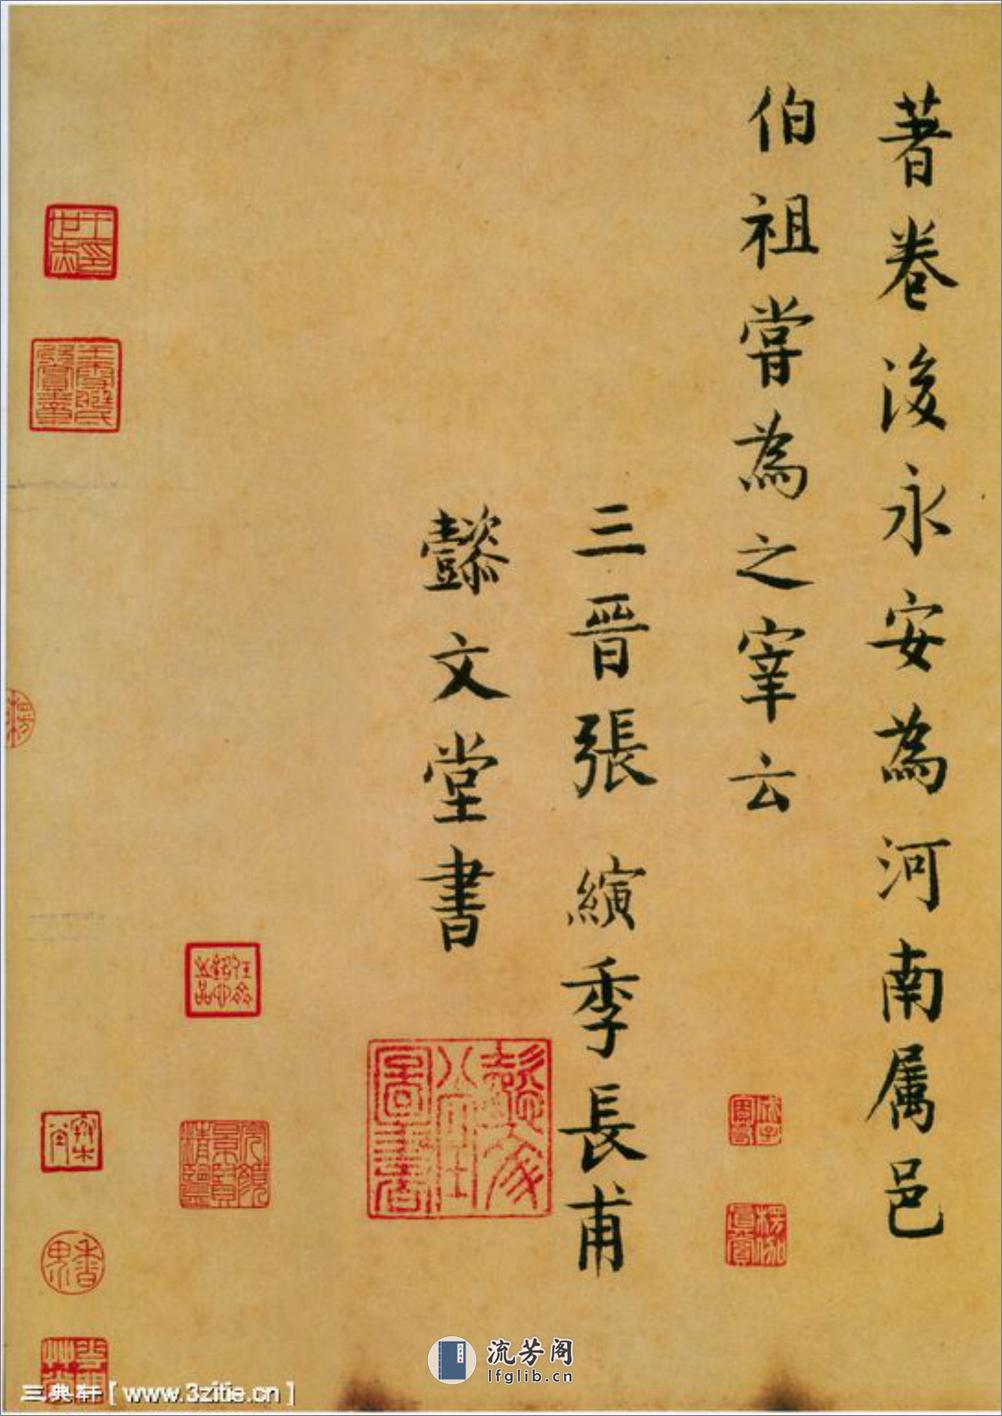 著卷後永安為河南属邑
伯祖嘗為之宰云
三晋張縯季長甫
懿文堂書
流芳阁
lfglib.cn
三典轩[www.3zitie.cn]